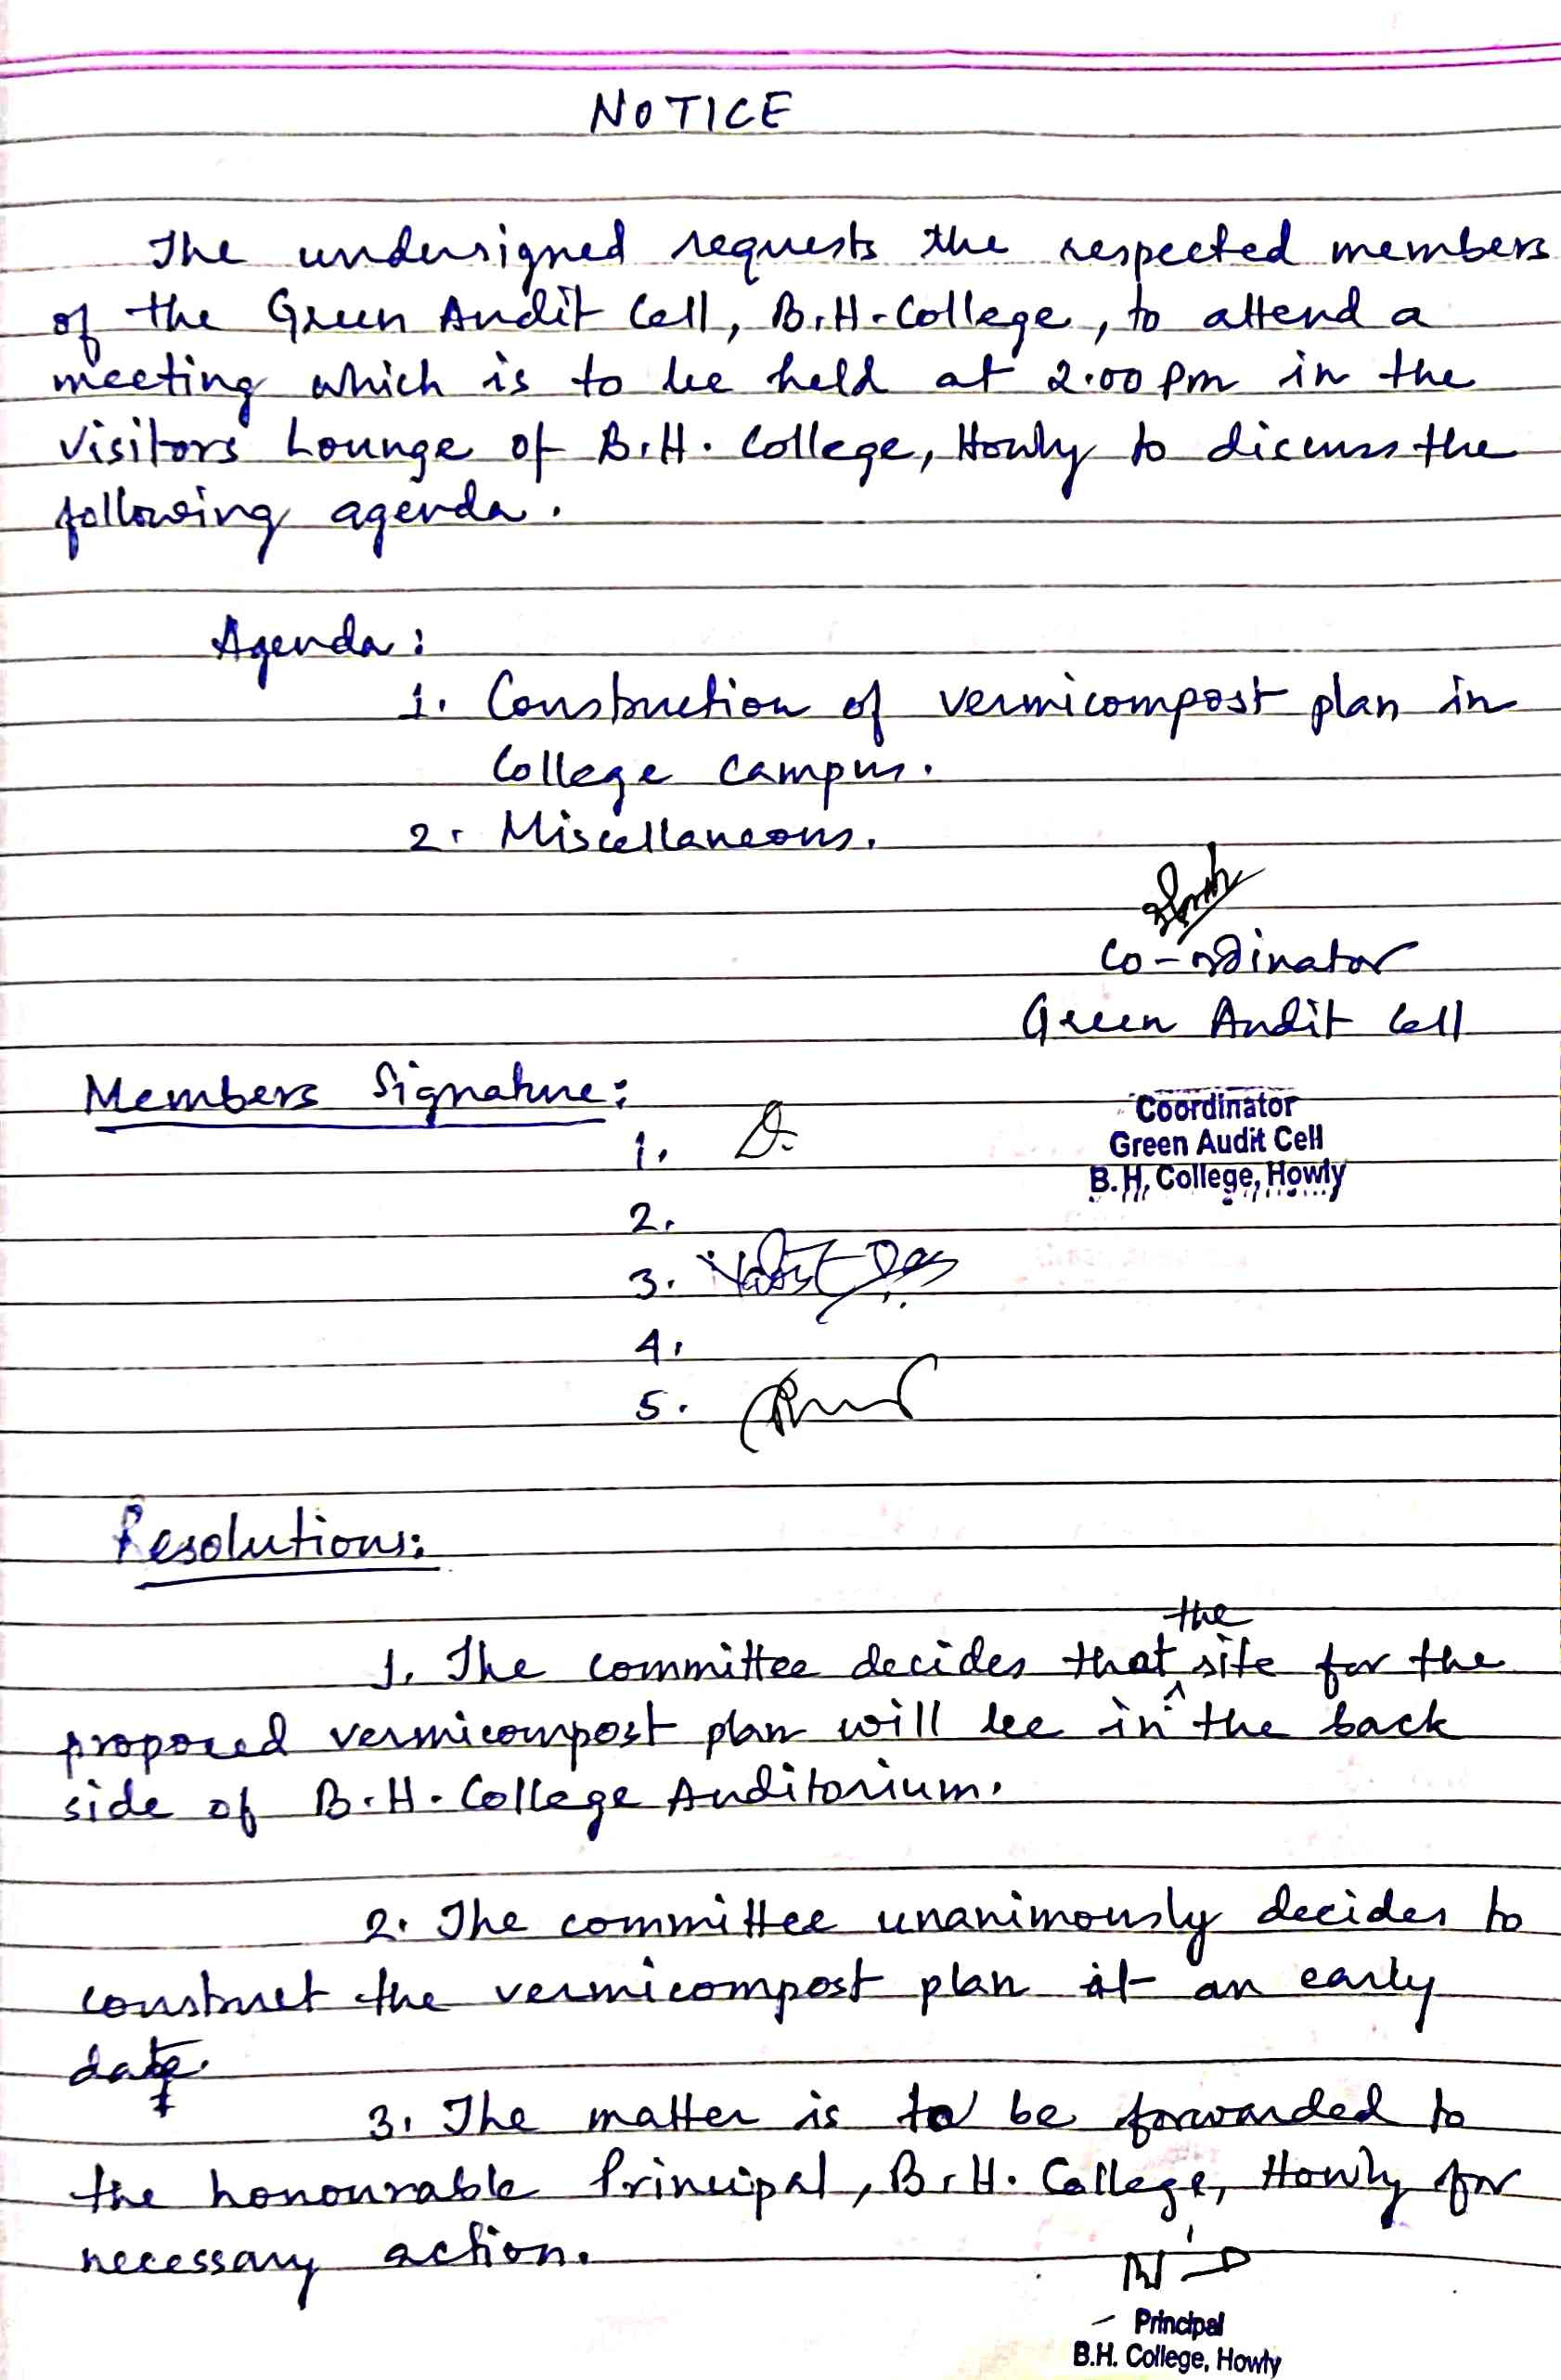 NOTICE
The undersigned requests the respected members
of the Green Audit Cell, B.H. College, to attend a
meeting which is to be held at 2.00 pm in the
Visitors' Lounge of B.H. College, Howly to discuss the
following agenda.
Agenda:
1. Construction of vermicompost plan in
College campus.
2. Miscellaneous.
Co-ordinator
Green Audit Cell
Members Signature:
Coordinator
Green Audit Cell
B.H. College, Howly
1.
2.
3. Das
4.
5.
Resolutions:
1. The committee decides that the site for the
proposed vermicompost plan will be in the back
side of B.H. College Auditorium.
2. The committee unanimously decides to
construct the vermicompost plan at an early
date.
3. The matter is to be forwarded to
the honourable Principal, B.H. College, Howly for
necessary action.
Principal
B.H. College, Howly